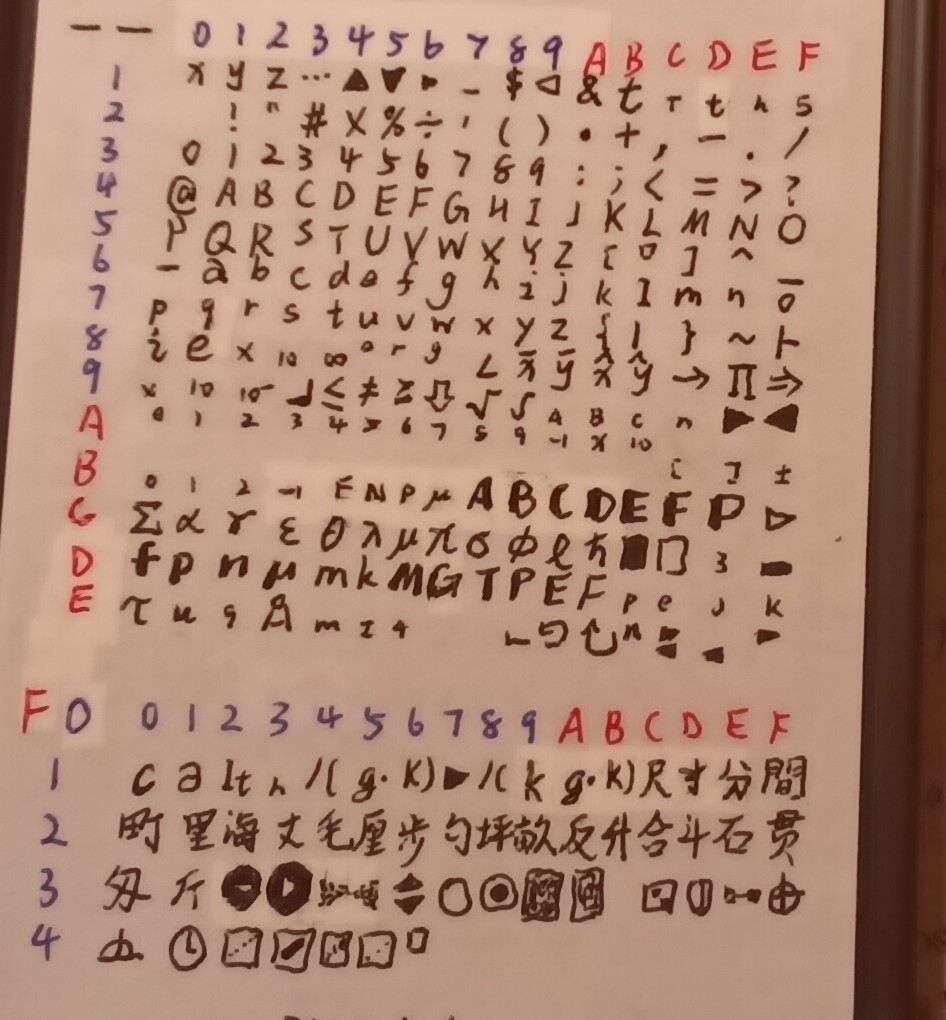 — — 0 1 2 3 4 5 6 7 8 9 A B C D E F
1 x y z … ▲ ▼ ▸ - $ ◁ & t т t h 5
2 ! " # X % ÷ ' ( ) • + , - . /
3 0 1 2 3 4 5 6 7 8 9 : ; < = > ?
4 @ A B C D E F G H I J K L M N O
5 P Q R S T U V W X Y Z [ ] ^ _
6 - a b c d e f g h i j k l m n o
7 p q r s t u v w x y z { | } ~ ⊢
8 i e x 10 ∞ ° r g ∠ x̄ ȳ x̂ ŷ → Π ⇒
9 x 10 10⁻ ┘ ≤ ≠ ≥ ⇩ √ ∫ A B C n ▶ ◀
A 0 1 2 3 4 5 6 7 8 9 -1 x 10 [ ] ±
B 0 1 2 -1 F N P μ A B C D E F P ▷
C Σ α γ ε θ λ μ π σ φ ℓ ℏ ■ 3 ▬
D f p n μ m k M G T P E F p e J k
E τ u q Å m I 4 n ▸
F0 0 1 2 3 4 5 6 7 8 9 A B C D E F
1 c a lt h /( g·K) ▶ /( k g·K) 尺 寸 分 間
2 町 里 海 丈 毛 厘 步 勺 坪 畝 反 升 合 斗 石 贯
3 匁 斤
4